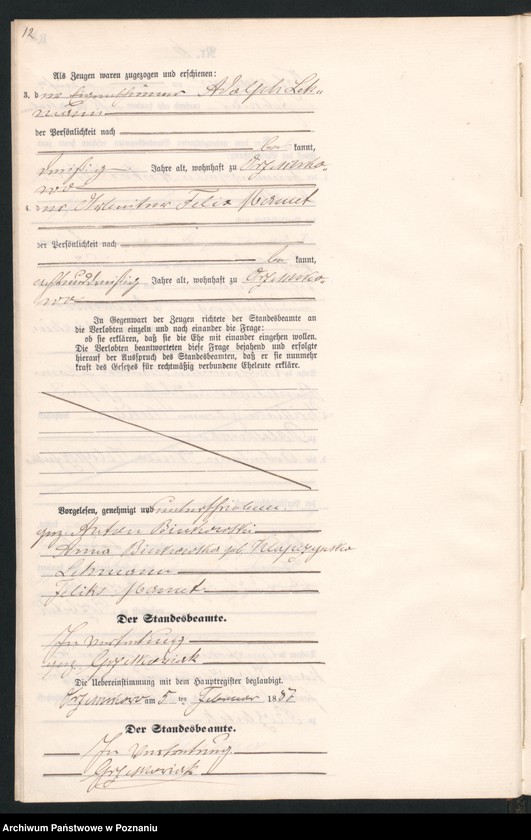 12
Als Zeugen waren zugezogen und erschienen:
3. der Adolph Leh-
mann
der Persönlichkeit nach
be kannt,
dreißig Jahre alt, wohnhaft zu
wo
4. der Arbeiter Felix Mamet
der Persönlichkeit nach
be kannt,
achtunddreißig Jahre alt, wohnhaft zu
wo
In Gegenwart der Zeugen richtete der Standesbeamte an
die Verlobten einzeln und nach einander die Frage:
ob sie erklären, daß sie die Ehe mit einander eingehen wollen.
Die Verlobten beantworteten diese Frage bejahend und erfolgte
hierauf der Ausspruch des Standesbeamten, daß er sie nunmehr
kraft des Gesetzes für rechtmäßig verbundene Eheleute erkläre.
Vorgelesen, genehmigt und unterschrieben.
gez. Anton Binkowski
Anna Binkowska geb
Lehmann
Feliks Mamet
Der Standesbeamte.
In Vertretung
gez.
Die Uebereinstimmung mit dem Hauptregister beglaubigt.
am 5 ten Februar 1887
Der Standesbeamte.
In Vertretung
Archiwum Państwowe w Poznaniu